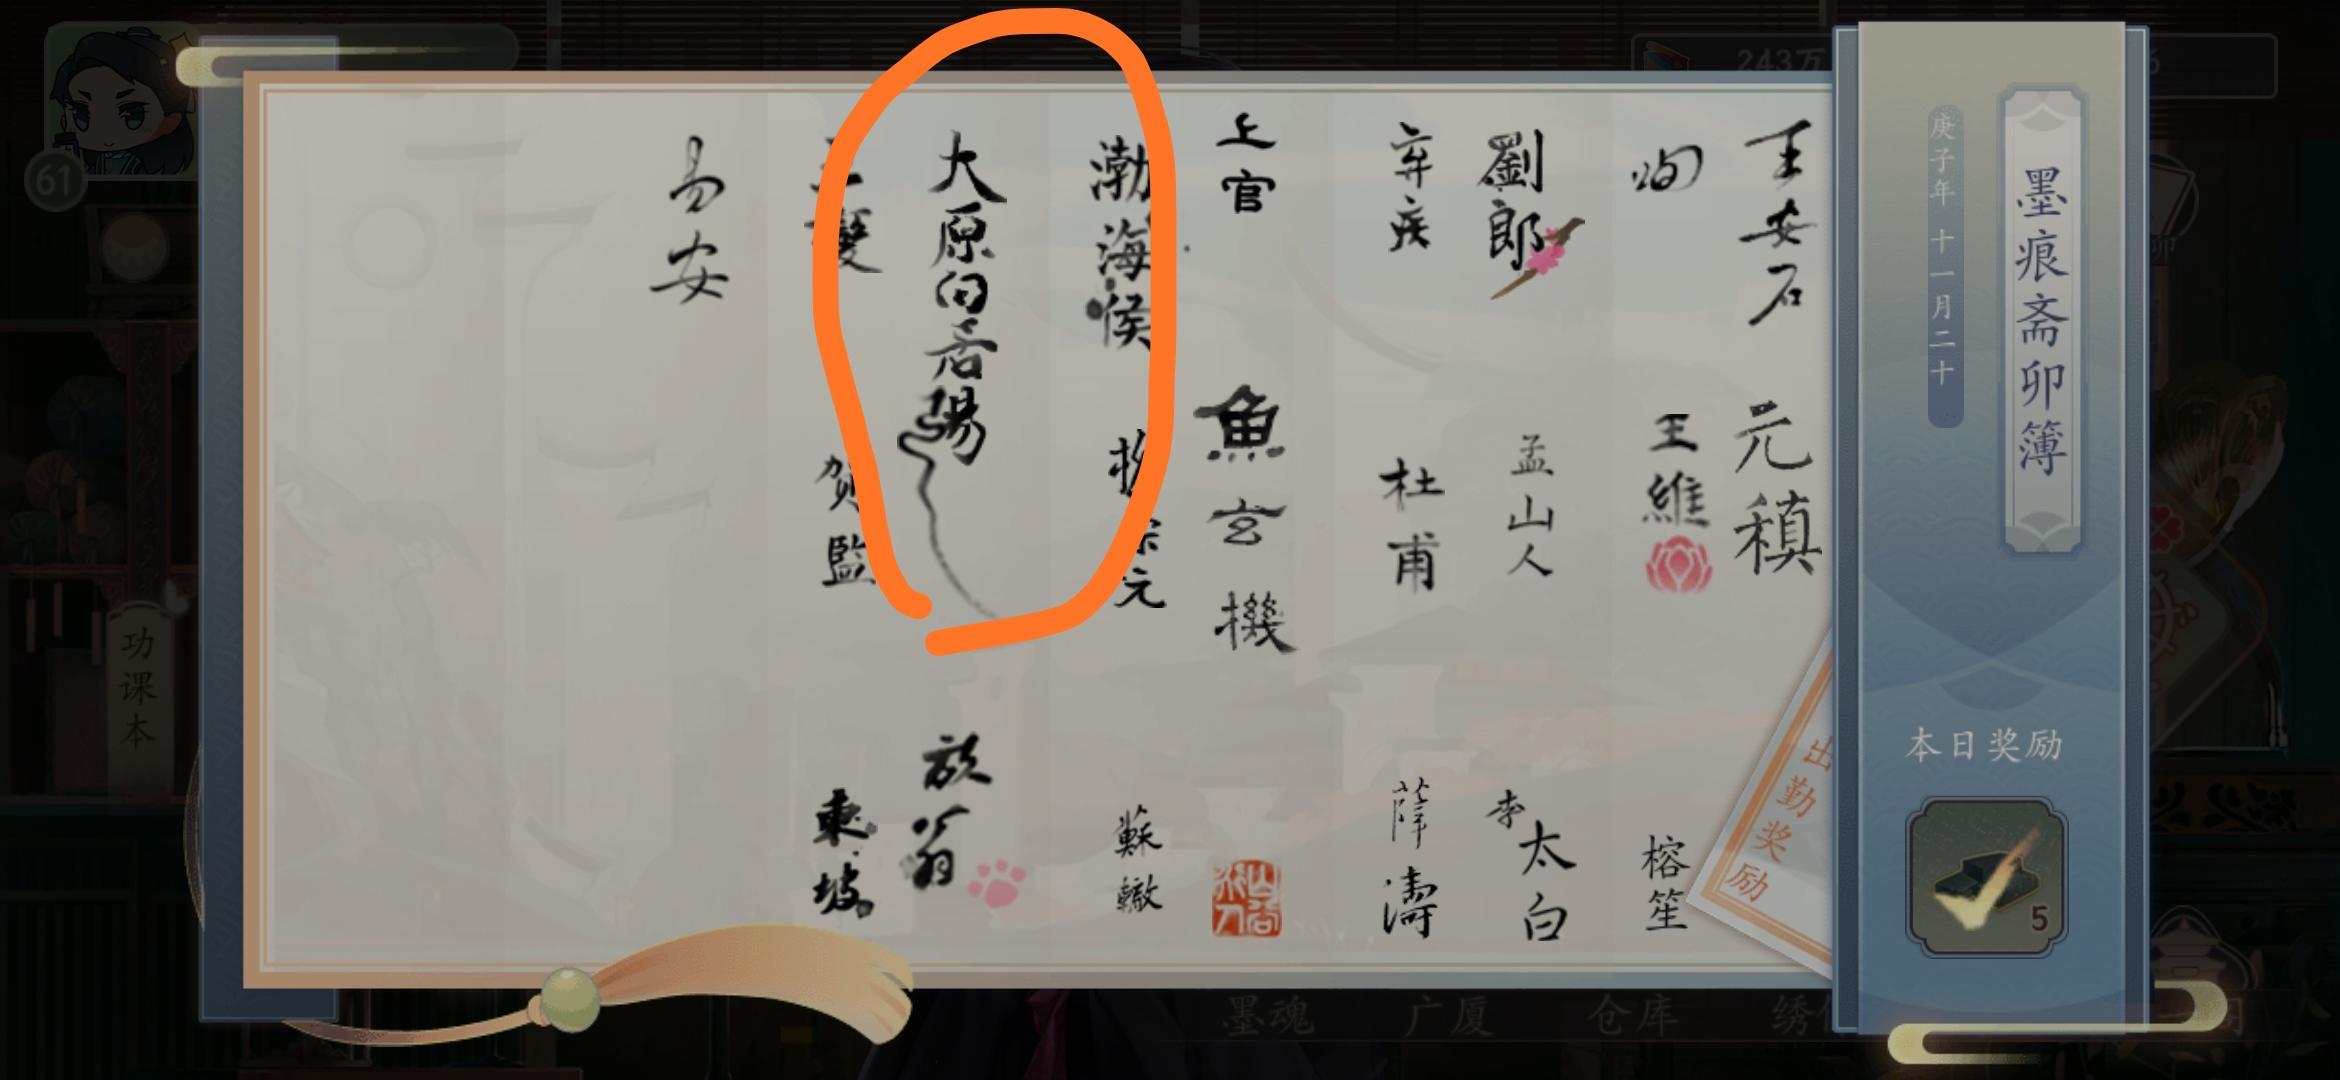 墨痕斋卯簿
庚子年 十一月二十
本日奖励
5
出勤奖励
王安石
元稹
王維
榕笙
劉郎
孟山人
李太白
弃疾
杜甫
薛濤
上官
魚玄機
渤海侯
蘇轍
大原白居易
放翁
賀監
東坡
易安
243万
61
功课本
墨魂
广厦
仓库